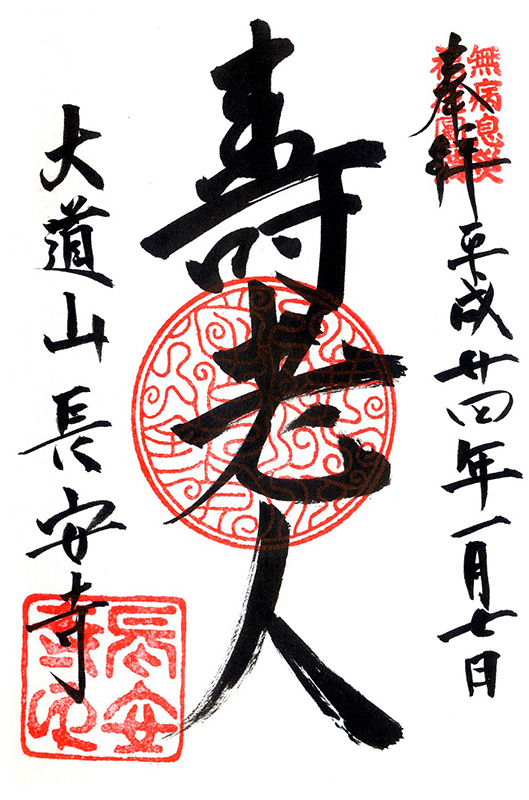 無病息災
奉拝 平成廿四年一月七日
寿老人
大道山 長安寺
長安寺印